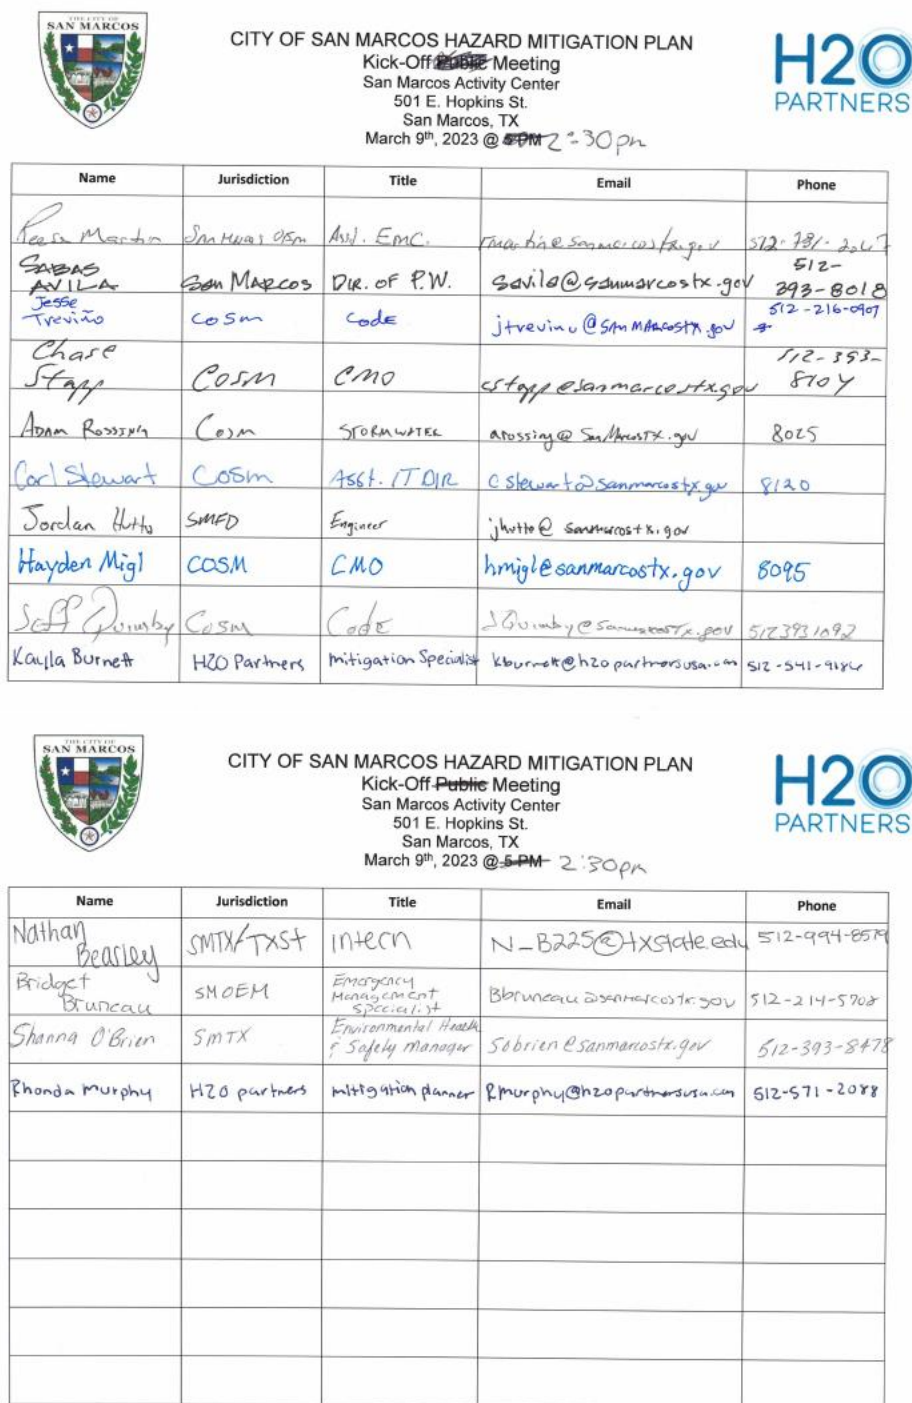 THE CITY OF
SAN MARCOS
CITY OF SAN MARCOS HAZARD MITIGATION PLAN
Kick-Off Public Meeting
San Marcos Activity Center
501 E. Hopkins St.
San Marcos, TX
March 9th, 2023 @ 5 PM 2:30pm
H2O
PARTNERS
Name Jurisdiction Title Email Phone
Reese Martin San Marcos Asst. EMC. rmartin@sanmarcostx.gov
SABAS AVILA San Marcos DIR. OF P.W. Savila@sanmarcostx.gov 512-393-8018
Jesse Treviño CoSm Code jtrevino@SAnMARcosTX.gov 512-216-0907
Chase Stapp CoSM CMO cstapp@sanmarcostxgov 512-393-8104
ADAM ROSSING Cosm STORMWATER arossing@SanMarcosTX.gov 8025
Carl Stewart COSm Asst. IT DIR cstewart@sanmarcostx.gov 8120
Jordan Hutto SMFD Engineer jhutto@sanmarcostx.gov
Hayden Migl COSM CMO hmigl@sanmarcostx.gov 8095
Jeff Quimby CoSM Code JQuimby@SanmarcosTx.gov 5123931092
Kayla Burnett H2O Partners mitigation Specialist kburnett@h2opartnersusa.com
THE CITY OF
SAN MARCOS
CITY OF SAN MARCOS HAZARD MITIGATION PLAN
Kick-Off Public Meeting
San Marcos Activity Center
501 E. Hopkins St.
San Marcos, TX
March 9th, 2023 @ 5 PM 2:30pm
H2O
PARTNERS
Name Jurisdiction Title Email Phone
Nathan Beasley SMTX/TXSt intern N_B225@txstate.edu 512-994-8579
Bridget Bruneau SMOEM Emergency Management Specialist Bbruneau@sanmarcostx.gov 512-214-5708
Shanna O'Brien SMTX Environmental Health & Safety Manager Sobrien@sanmarcostx.gov 512-393-8478
Rhonda Murphy H2O partners mitigation planner Rmurphy@h2opartnersusa.com 512-571-2088